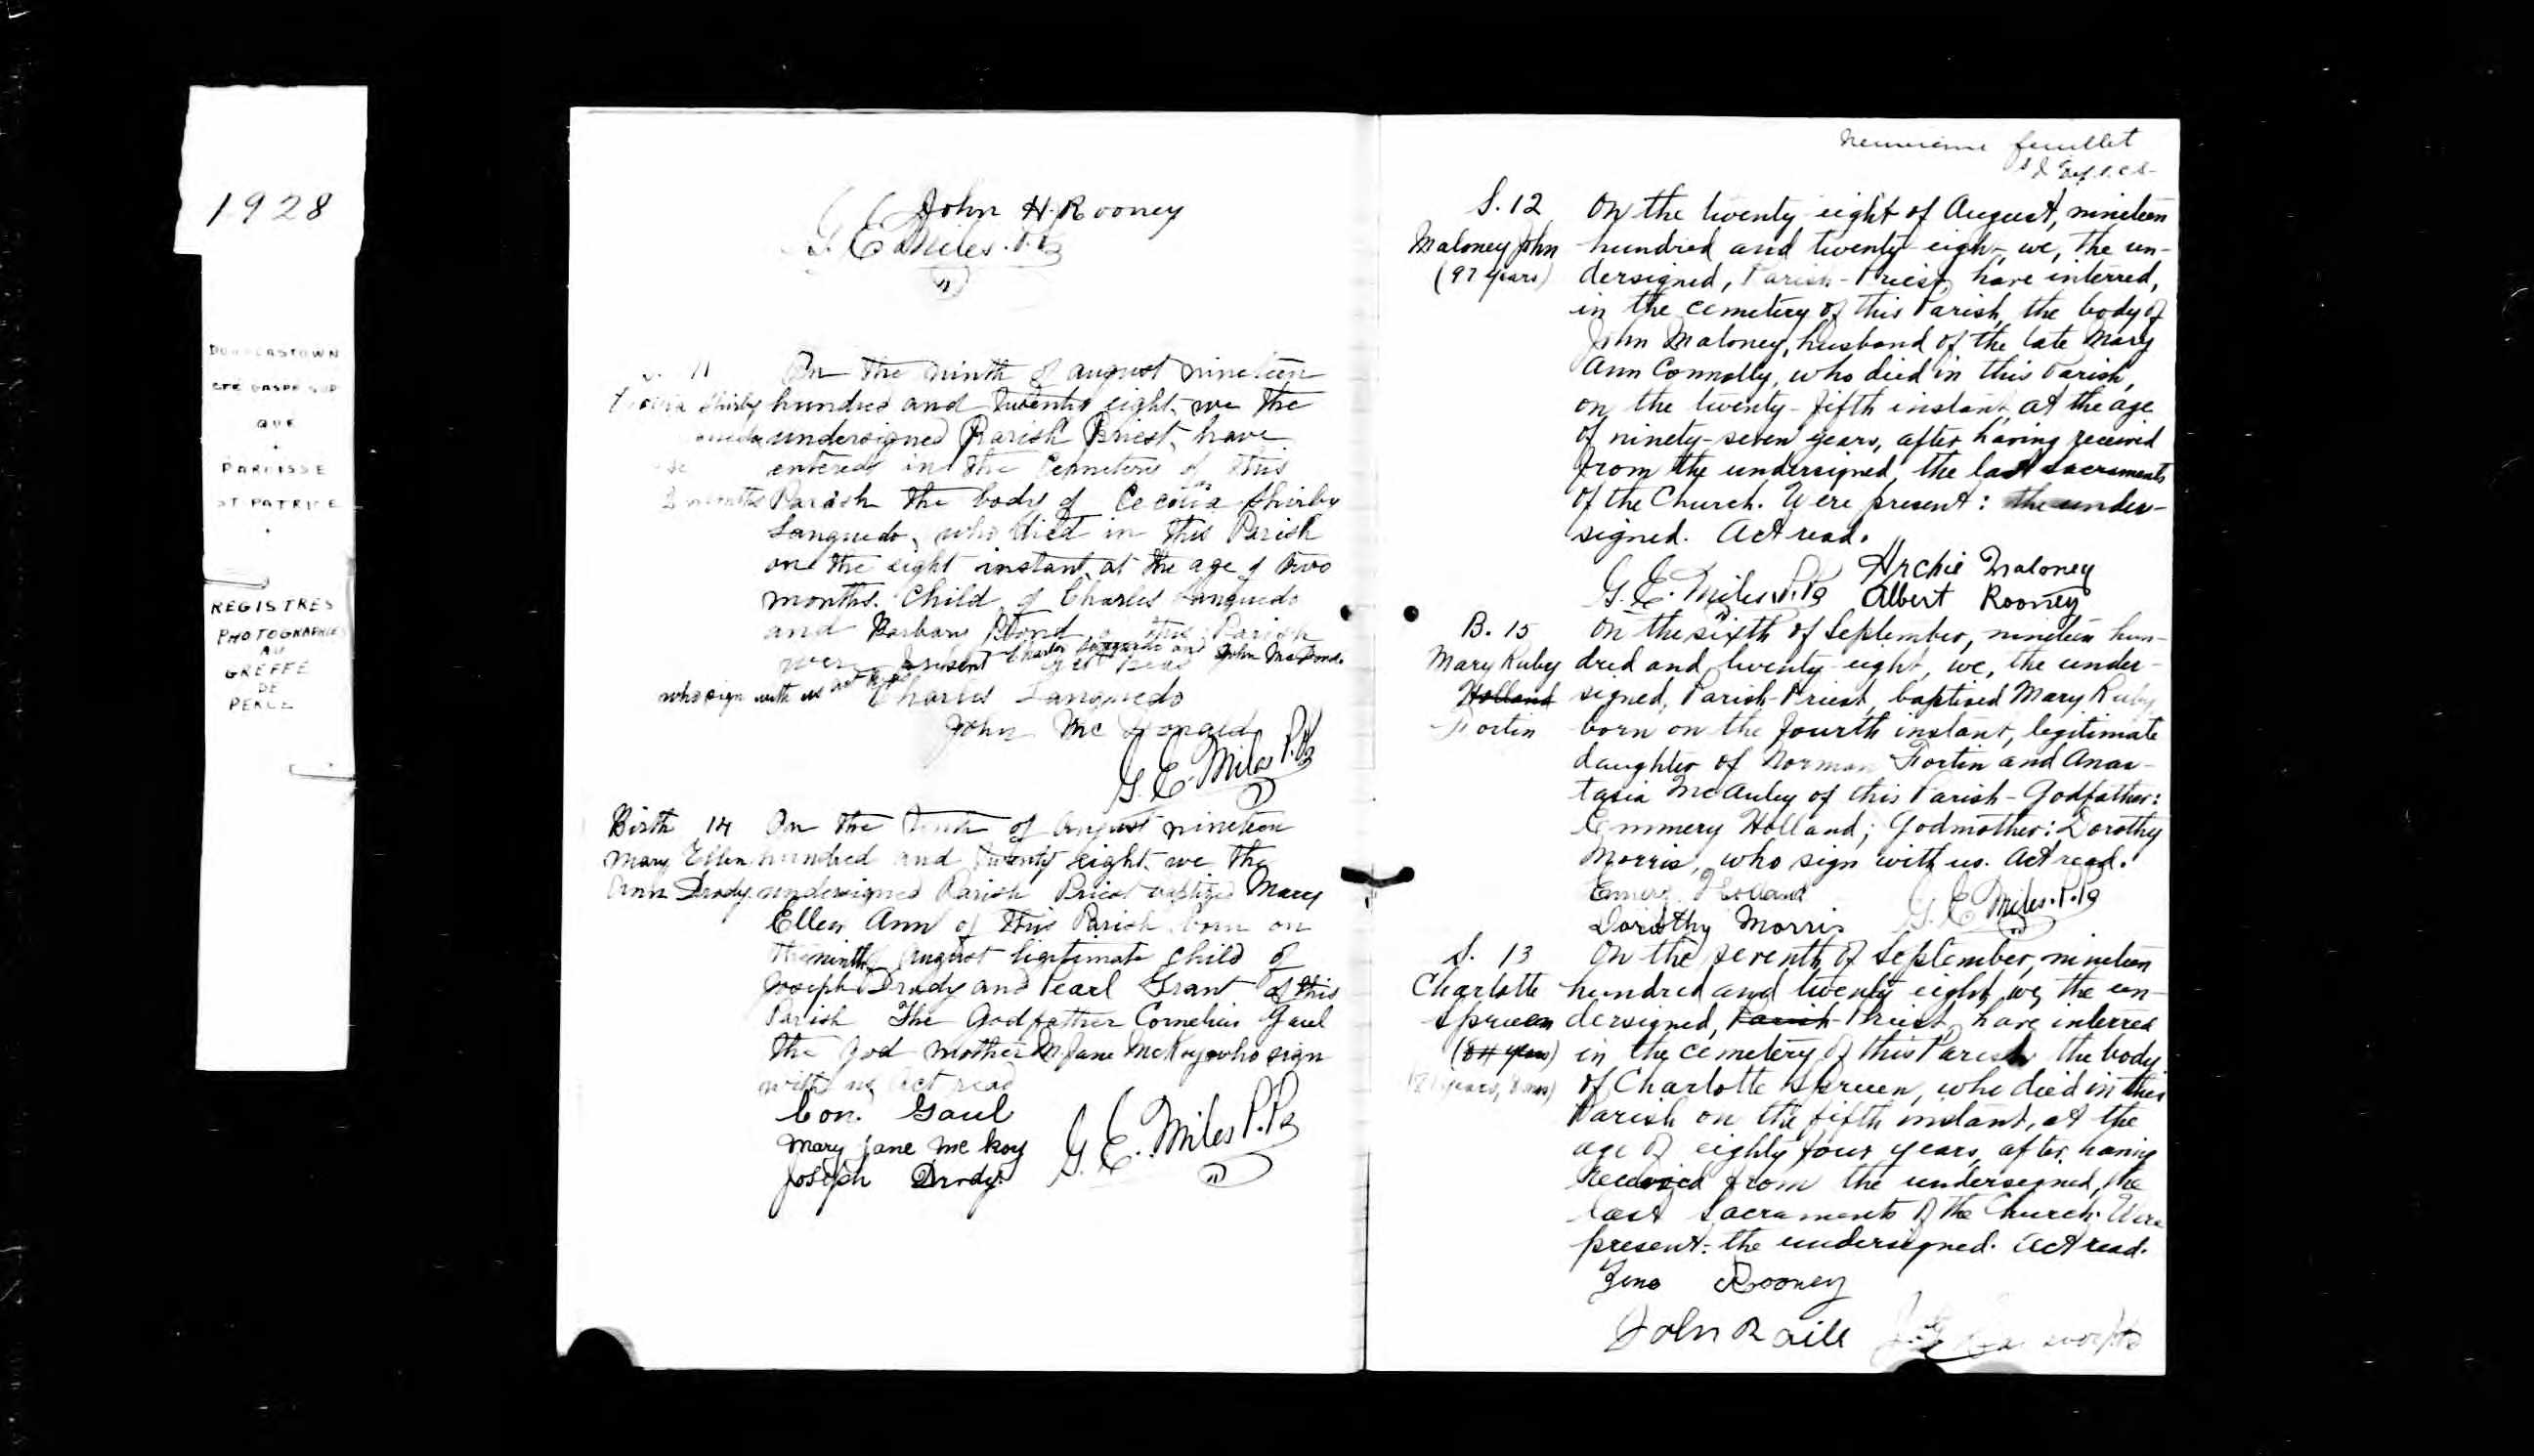 1928
DOUGLASTOWN
CTÉ GASPÉ SUD
QUE
PAROISSE
ST-PATRICE
REGISTRES
PHOTOGRAPHIES
AU
GREFFE
DE
PERCE
John H. Rooney
G. E. Miles P.P.
11 On the ninth of august nineteen
Shirby hundred and twenty eight, we the
undersigned Parish Priest, have
entered in the Cemetery of this
2 months Parish the body of Cecelia Shirby
Languedo, who died in this Parish
on the eight instant, at the age of two
months. Child of Charles Languedo
and Barbara Bond of this Parish
were present Charles Languedo and John McDonald
who sign with us act read
Charles Languedo
John McDonald
G. E. Miles P.P.
Birth 14 On the tenth of August nineteen
Mary Ellen hundred and twenty eight, we the
Ann Drody undersigned Parish Priest baptized Mary
Ellen Ann of this Parish born on
the ninth August ligitimate child of
Joseph Drody and Pearl Grant of this
Parish The Godfather Cornelius Gaul
the God mother M. Jane McKoy who sign
with us Act read
Con. Gaul
Mary Jane McKoy
Joseph Drody
G. E. Miles P.P.
neuvième feuillet
S. 12 On the twenty eight of August, nineteen
Maloney John hundred and twenty eight, we, the un-
(97 years) dersigned, Parish-Priest, have interred,
in the cemetery of this Parish, the body of
John Maloney, husband of the late Mary
Ann Connolly, who died in this Parish,
on the twenty-fifth instant, at the age
of ninety-seven years, after having received
from the undersigned, the last sacraments
of the Church. Were present: the under-
signed. Act read.
Archie Maloney
G. E. Miles P.P. Albert Rooney
B. 15 On the sixth of September, nineteen hun-
Mary Ruby dred and twenty eight, we, the under-
Holland signed, Parish-Priest, baptised Mary Ruby,
Fortin born on the fourth instant, legitimate
daughter of Norman Fortin and Anas-
tasia McAuley of this Parish - Godfather:
Emmery Holland; Godmother: Dorothy
Morris, who sign with us. Act read.
Emery Holland
Dorothy Morris G. E. Miles P.P.
S. 13 On the seventh of September, nineteen
Charlotte hundred and twenty eight, we, the un-
Spruen dersigned, Parish Priest, have interred
(84 years) in the cemetery of this Parish the body
of Charlotte Spruen, who died in this
Parish on the fifth instant, at the
age of eighty four years, after having
received from the undersigned, the
last sacraments of the Church. Were
present: the undersigned. Act read.
Rooney
John